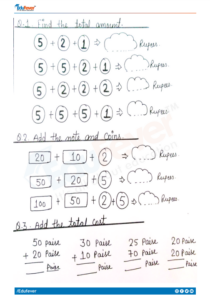 Eduhner
Q.1 Find the total amount.
5 + 2 + 1 ⇒ Rupees
5 + 5 + 2 + 1 ⇒ Rupees
5 + 2 + 2 + 2 ⇒ Rupees
5 + 5 + 5 + 1 ⇒ Rupees
Q.2 Add the note and Coins.
20 + 10 + 2 ⇒ Rupees
50 + 20 + 5 ⇒ Rupees
100 + 50 + 2 + 5 ⇒ Rupees
Q.3. Add the total cost
50 Paise 30 Paise 25 Paise 20 Paise
+ 20 Paise + 10 Paise 70 Paise 20 Paise
Paise Paise Paise Paise